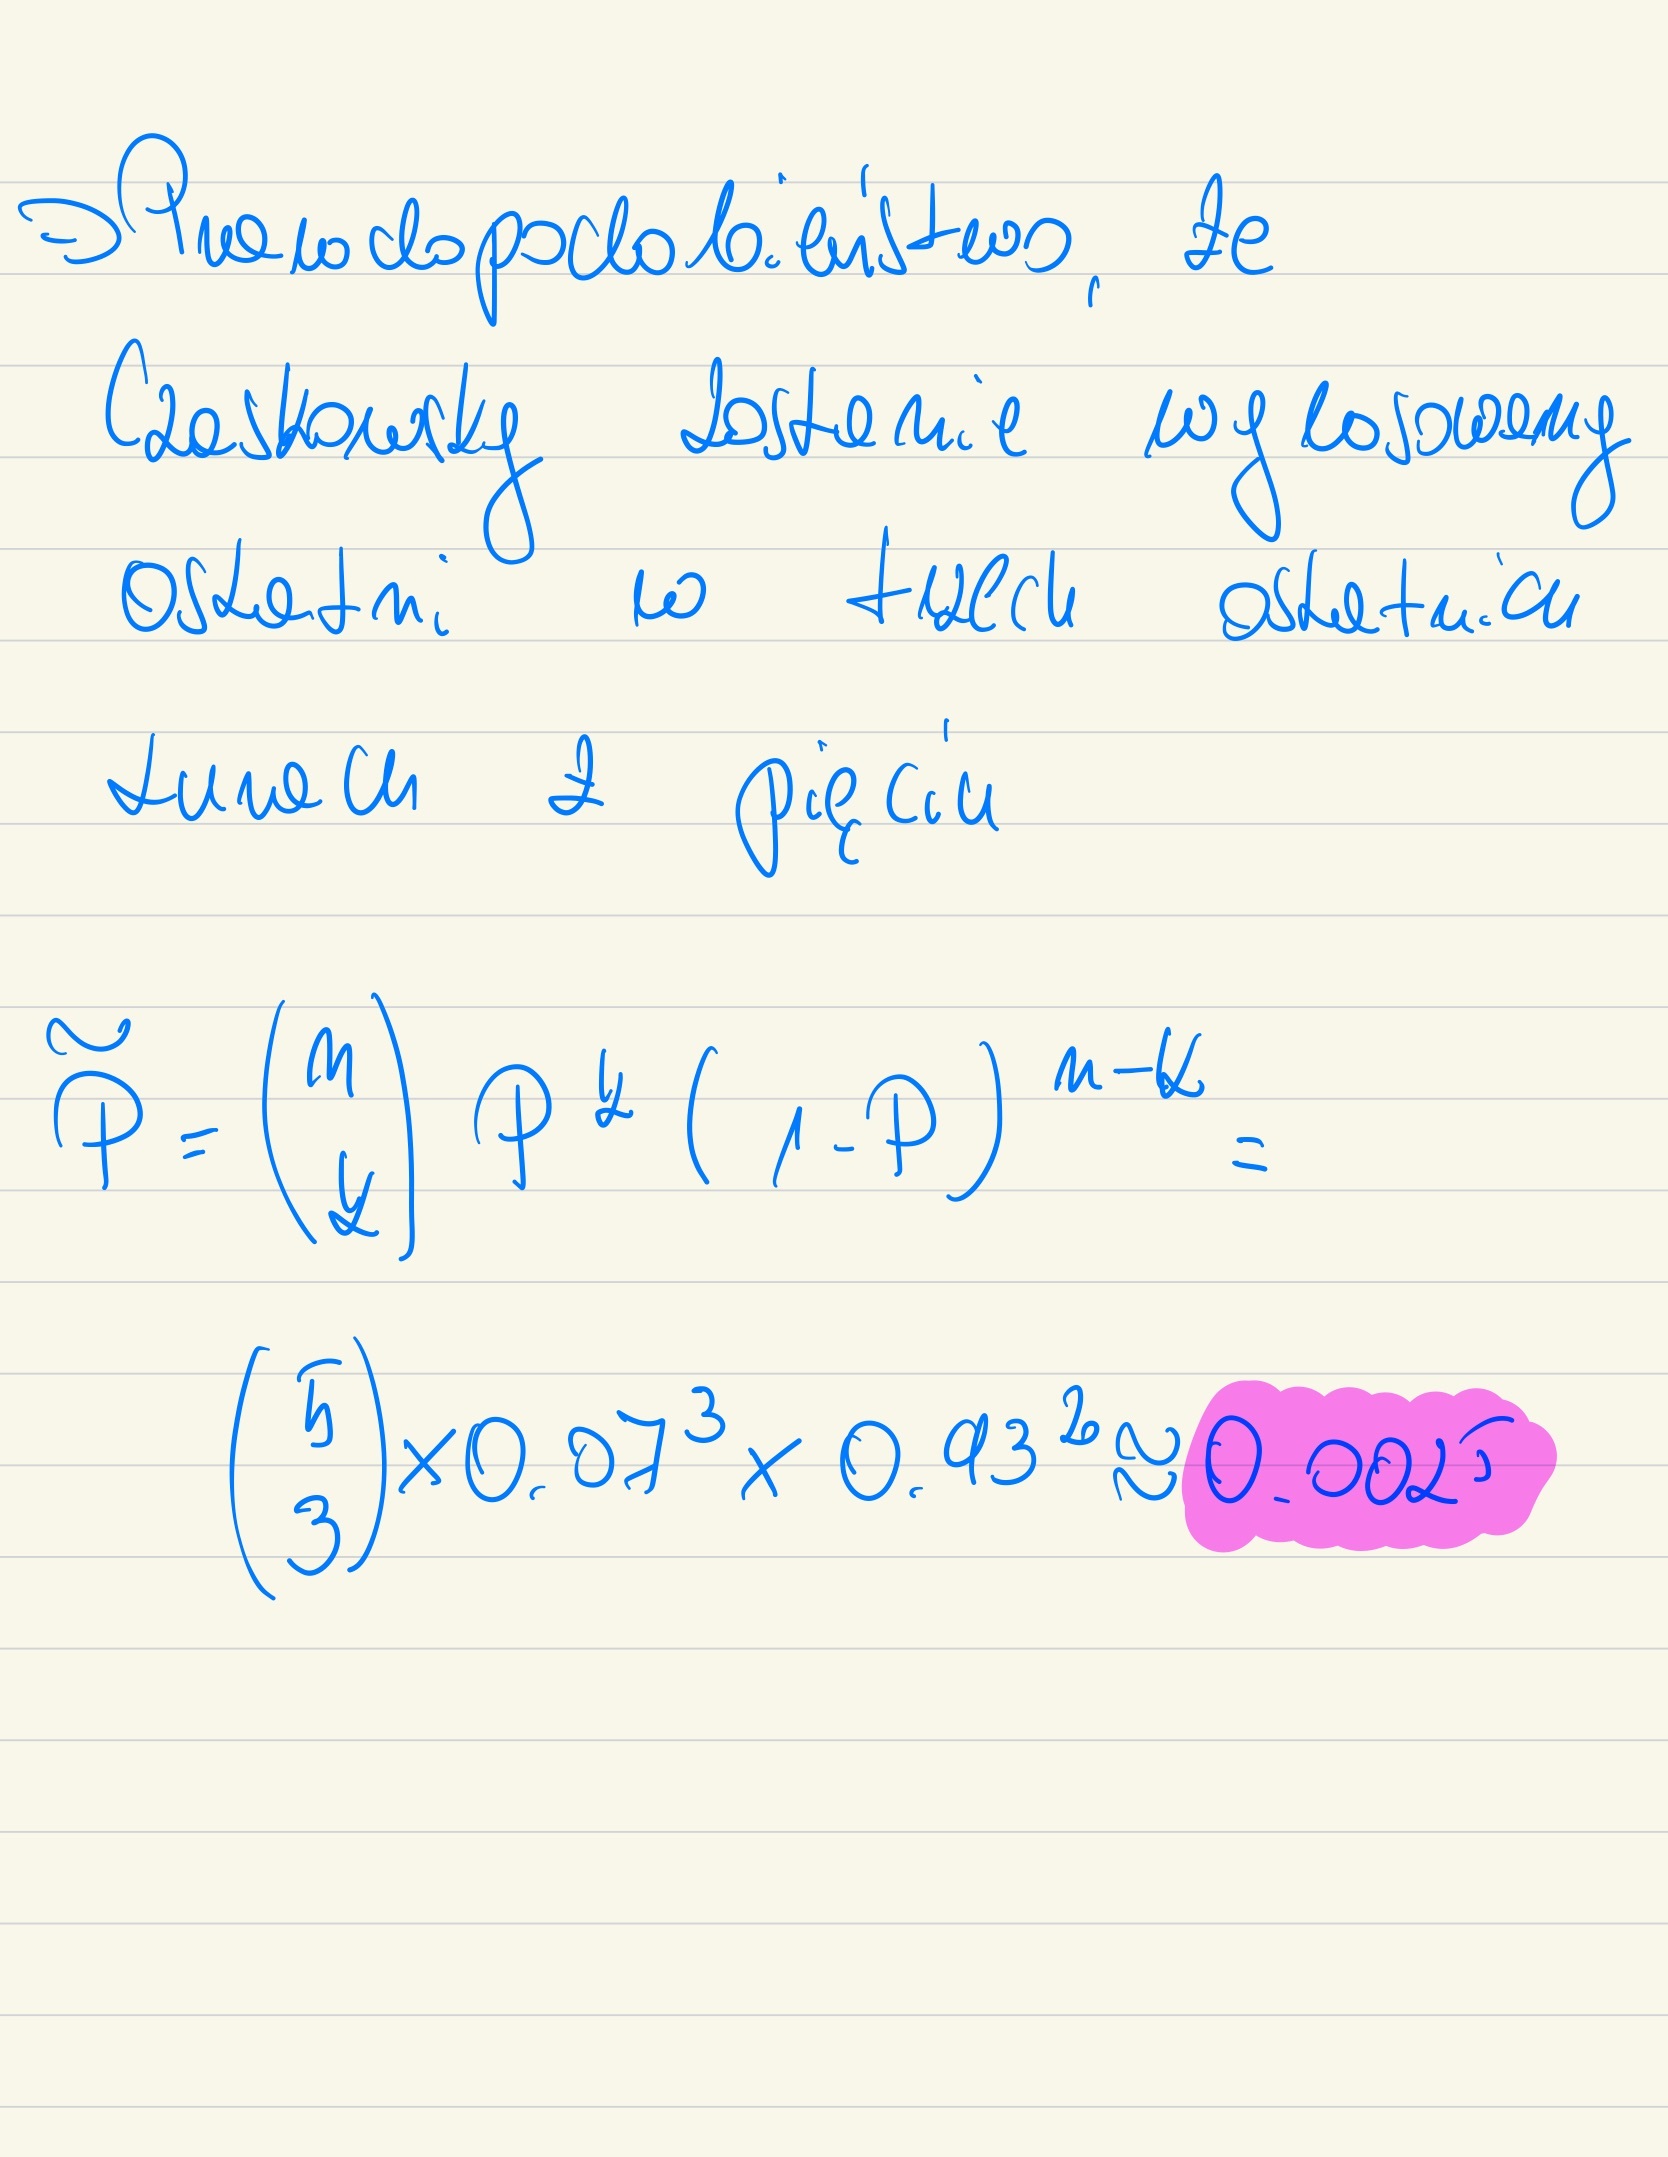 → Prawdopodobieństwo, że
Czeskousty zostanie wylosowany
ostatni w trzech ostatnich
turach z pięciu
P̃ = (n k) P^k (1-P)^{n-k} =
(5 3) × 0.07^3 × 0.93^2 ≈ 0.0025